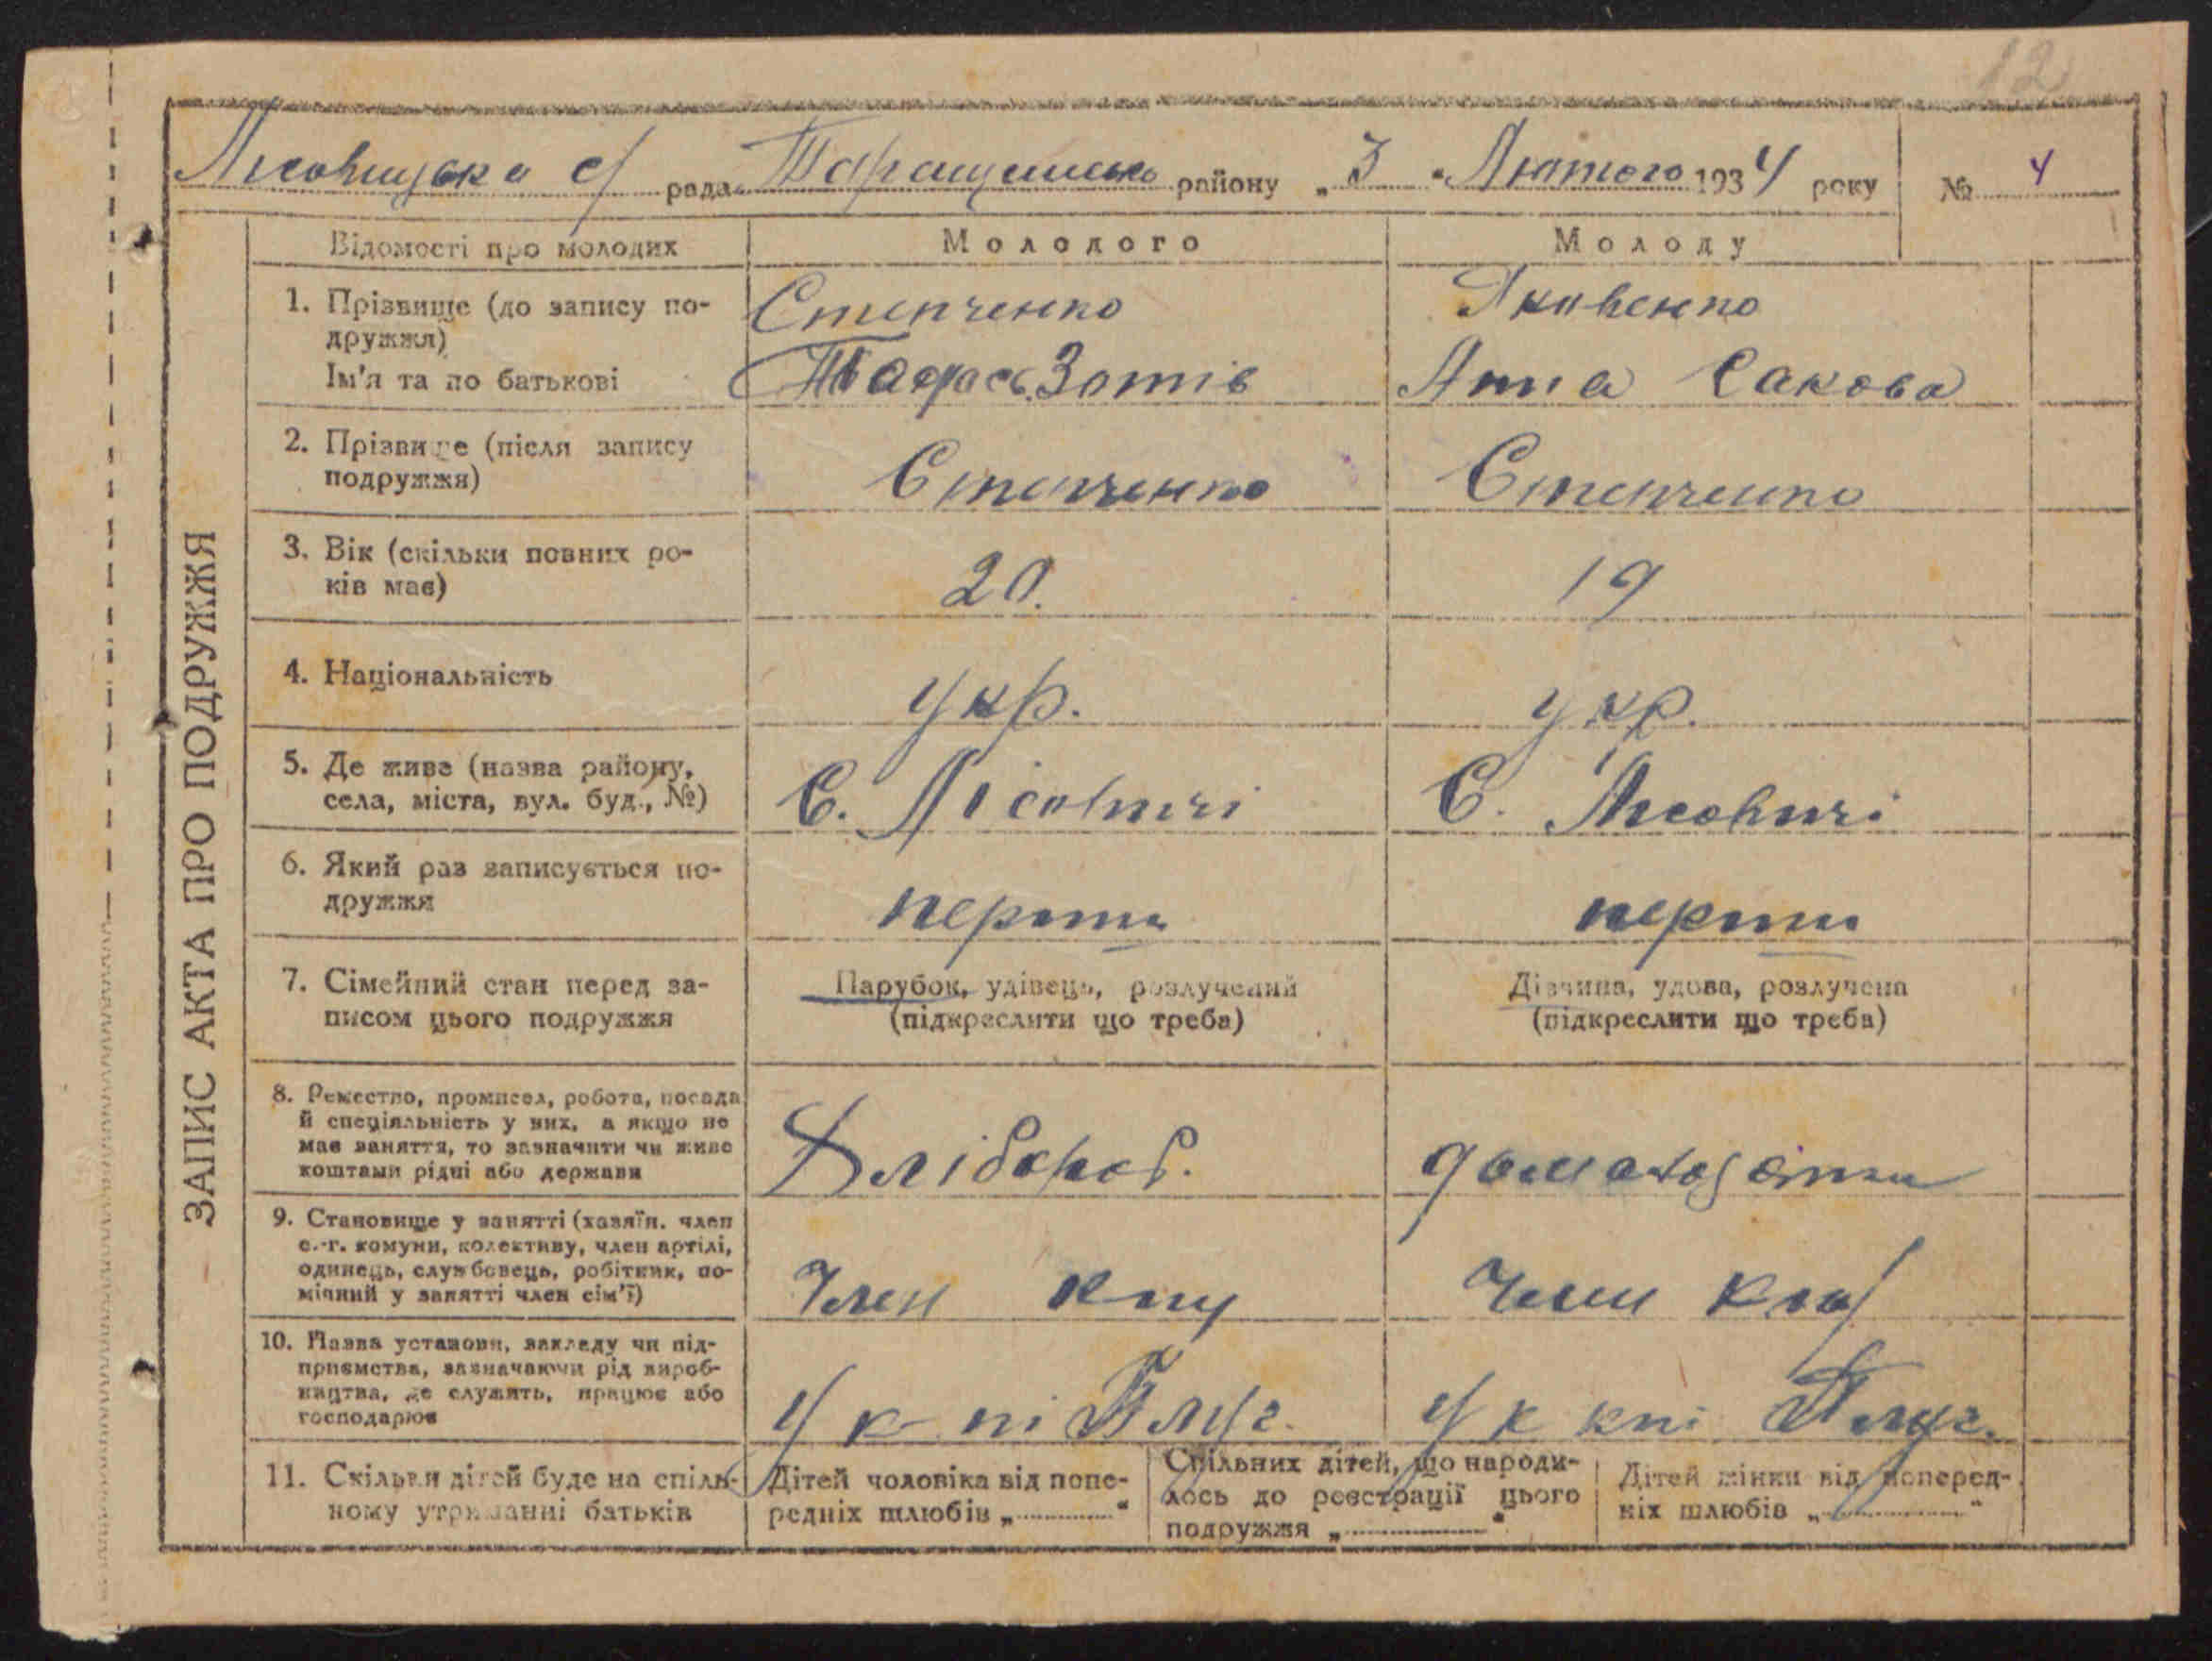 12
Лісовицька с/рада Таращансько району „3“ Лютого 1934 року № 4
ЗАПИС АКТА ПРО ПОДРУЖЖЯ
Відомості про молодих Молодого Молоду
1. Прізвище (до запису по-
дружжя) Степченко Яковенко
Ім'я та по батькові Тарас Зотів Анна Сакова
2. Прізвище (після запису
подружжя) Степченко Степченко
3. Вік (скільки повних ро-
ків має) 20. 19
4. Національність укр. укр.
5. Де живе (назва району,
села, міста, вул. буд., №) С. Лісовичі С. Лісовичі
6. Який раз записується по-
дружжя перший перший
7. Сімейний стан перед за- Парубок, удівець, розлучений Дівчина, удова, розлучена
писом цього подружжя (підкреслити що треба) (підкреслити що треба)
8. Ремество, промисел, робота, посада
й спеціяльність у них, а якщо не
має заняття, то зазначити чи живе
коштами рідні або держави Хлібороб.
9. Становище у занятті (хазяїн, член
с.-г. комуни, колективу, член артілі,
одинець, службовець, робітник, по-
мічний у занятті член сім'ї) Член Член
10. Назва установи, закладу чи під-
приємства, зазначаючи рід вироб-
ництва, де служить, працює або
господарює у Плуг. у Плуг.
11. Скільки дітей буде на спіль-
ному утриманні батьків
Дітей чоловіка від попе-
редніх шлюбів „ “
Спільних дітей, що народи-
лось до реєстрації цього
подружжя „ “
Дітей жінки від поперед-
ніх шлюбів „ “